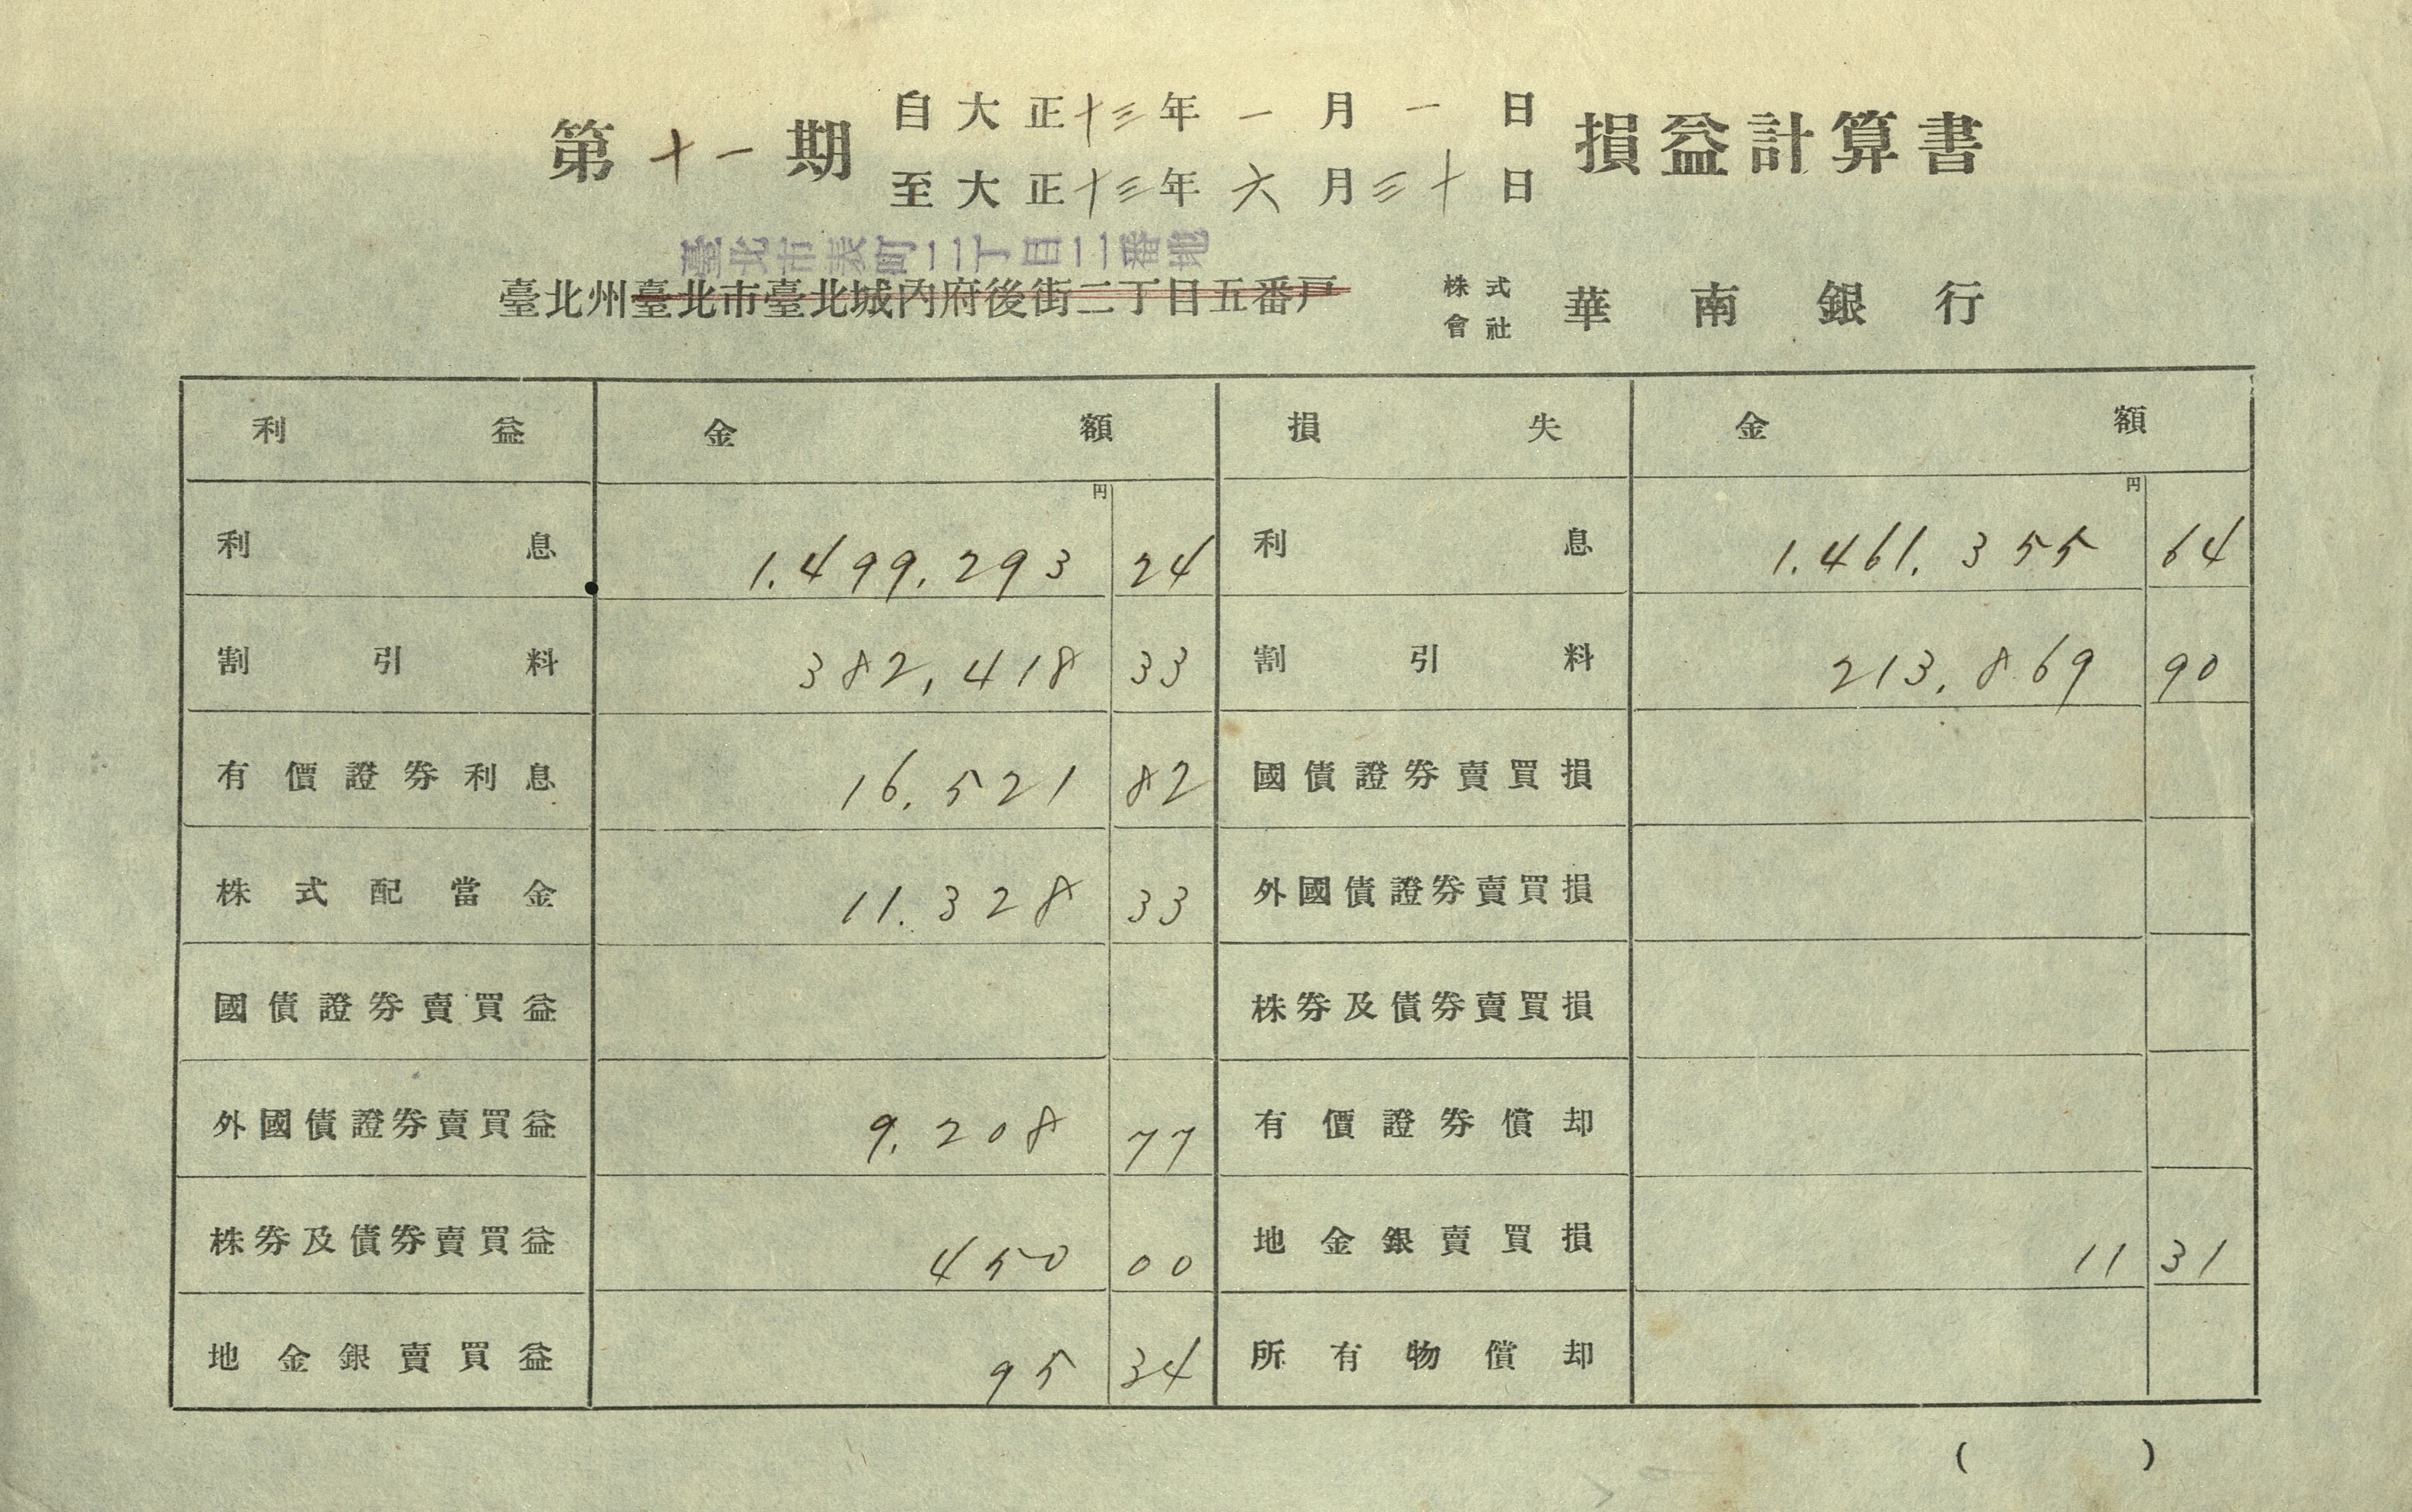 第十一期 自大正十三年一月一日 損益計算書
至大正十三年六月三十日
臺北市表町二丁目二番地
臺北州臺北市臺北城內府後街二丁目五番戸 株式會社 華南銀行
利益 金額 損失 金額
円 円
利息 1.499.293 24 利息 1.461.355 64
割引料 382,418 33 割引料 213.869 90
有價證券利息 16.521 82 國債證券賣買損
株式配當金 11.328 33 外國債證券賣買損
國債證券賣買益 株券及債券賣買損
外國債證券賣買益 9.208 77 有價證券償却
株券及債券賣買益 450 00 地金銀賣買損 11 31
地金銀賣買益 95 34 所有物償却
( )